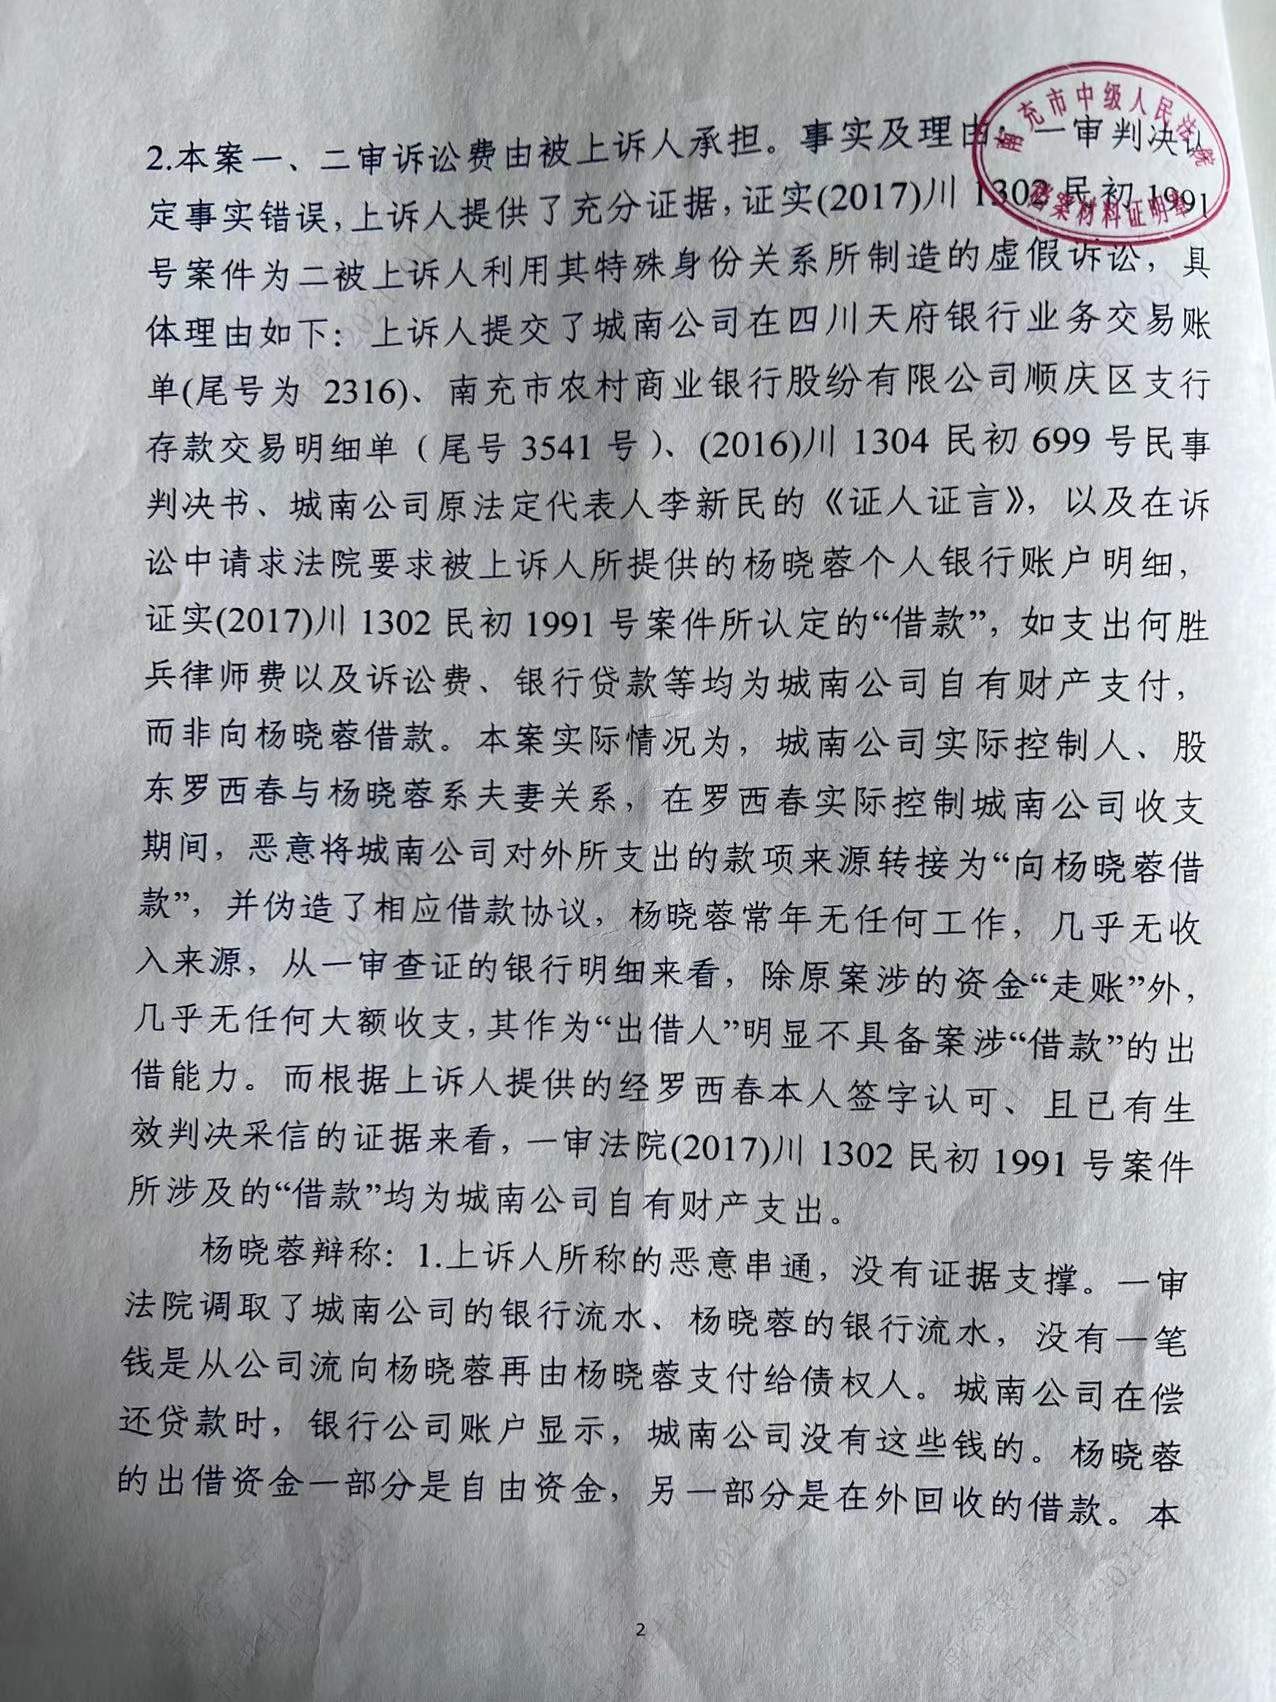 南充市中级人民法院
档案材料证明章
2.本案一、二审诉讼费由被上诉人承担。事实及理由：一审判决认
定事实错误，上诉人提供了充分证据，证实(2017)川1302民初1991
号案件为二被上诉人利用其特殊身份关系所制造的虚假诉讼，具
体理由如下：上诉人提交了城南公司在四川天府银行业务交易账
单(尾号为 2316)、南充市农村商业银行股份有限公司顺庆区支行
存款交易明细单（尾号3541号）、(2016)川1304民初699号民事
判决书、城南公司原法定代表人李新民的《证人证言》，以及在诉
讼中请求法院要求被上诉人所提供的杨晓蓉个人银行账户明细，
证实(2017)川1302民初1991号案件所认定的“借款”，如支出何胜
兵律师费以及诉讼费、银行贷款等均为城南公司自有财产支付，
而非向杨晓蓉借款。本案实际情况为，城南公司实际控制人、股
东罗西春与杨晓蓉系夫妻关系，在罗西春实际控制城南公司收支
期间，恶意将城南公司对外所支出的款项来源转接为“向杨晓蓉借
款”，并伪造了相应借款协议，杨晓蓉常年无任何工作，几乎无收
入来源，从一审查证的银行明细来看，除原案涉的资金“走账”外，
几乎无任何大额收支，其作为“出借人”明显不具备案涉“借款”的出
借能力。而根据上诉人提供的经罗西春本人签字认可、且已有生
效判决采信的证据来看，一审法院(2017)川1302民初1991号案件
所涉及的“借款”均为城南公司自有财产支出。
杨晓蓉辩称：1.上诉人所称的恶意串通，没有证据支撑。一审
法院调取了城南公司的银行流水、杨晓蓉的银行流水，没有一笔
钱是从公司流向杨晓蓉再由杨晓蓉支付给债权人。城南公司在偿
还贷款时，银行公司账户显示，城南公司没有这些钱的。杨晓蓉
的出借资金一部分是自由资金，另一部分是在外回收的借款。本
2